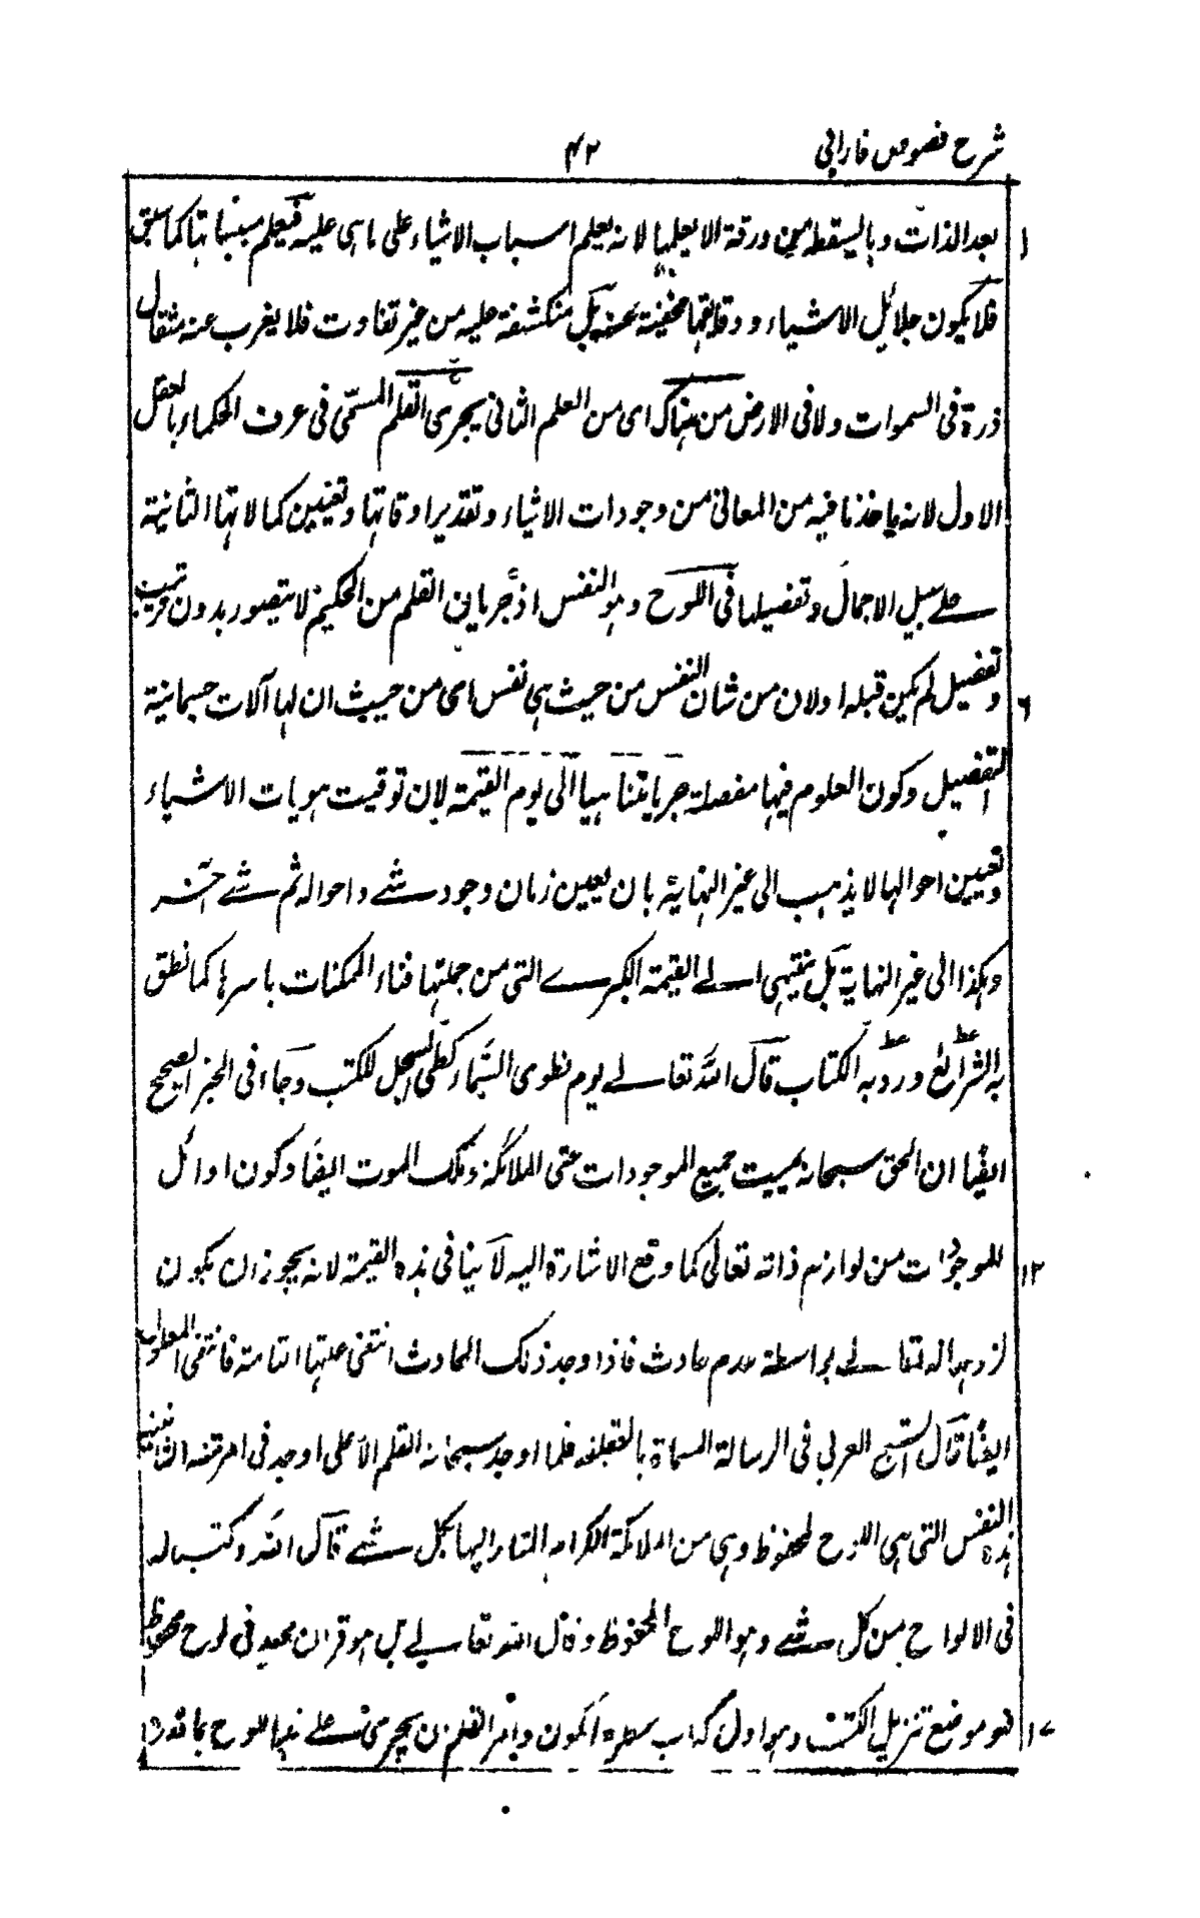 شرح فصوص فارابی ۴۲
بعد الذات و ما یسقط من ورقة الا یعلمها لانه یعلم اسباب الاشیاء علی ما هی علیه فیعلم مسبباتها کما سبق ۱
فلا یکون جلائل الاشیاء و دقایقها مخفیة عنه بل منکشفة علیه من غیر تفاوت فلا یغرب عنه مثقال
ذرة فی السموات ولا فی الارض من هناک ای من العلم الثانی یجری القلم المسمّی فی عرف الحکماء بالعقل
الاول لانه یاخذ ما فیه من المعانی من وجودات الاشیاء و تقدیر اوقاتها و تعیین کمالاتها الثانیة
علے سبیل الاجمال و تفصیلها فی اللوح و هو النفس اذ جریان القلم من الحکیم لا یتصور بدون ترتیب
و تفصیل لم یکن قبله اولان من شان النفس من حیث هی نفس ای من حیث ان لها آلات جسمانیة ۶
التفصیل و کون العلوم فیها مفصلة جریا متناهیا الی یوم القیمة لان توقیت هویات الاشیاء
و تعیین احوالها لا یذهب الی غیر النهایة بان یعین زمان وجود شے و احواله ثم شے آخر
و هکذا الی غیر النهایة بل ینتهی الے القیمة الکبرے التی من جملتها فناء الممکنات باسرها کما نطق
به الشرائع و ورد به الکتاب قال الله تعالے یوم نطوی السماء کطی السجل للکتب و جاء فی الخبر الصحیح
ایضا ان الحق سبحانه یمیت جمیع الموجودات حتی الملائکة و ملک الموت ایضا و کون اوائل
الموجودات من لوازم ذاته تعالی کما وقع الاشارة الیه لا ینافی هذه القیمة لانه یجوز ان یکون ۱۲
لزومها له تعالے بواسطة عدم حادث فاذا وجد ذلک الحادث انتفی علتها التامة فانتفی المعلول
ایضا قال الشیخ العربی فی الرسالة المسماة بالعقلة فلما اوجد سبحانه القلم الاعلی اوجد فی المرتبة الثانیة
هذه النفس التی هی اللوح المحفوظ و هی من الملائکة الکرام المشار الیها بکل شے قال الله و کتبنا له
فی الالواح من کل شے و هو اللوح المحفوظ و قال الله تعالے بل هو قرآن مجید فی لوح محفوظ
فهو موضع تنزیل الکتب و هو اول کتاب سطره الکون و امر القلم ان یجری علے هذا اللوح بما قدره ۱۷